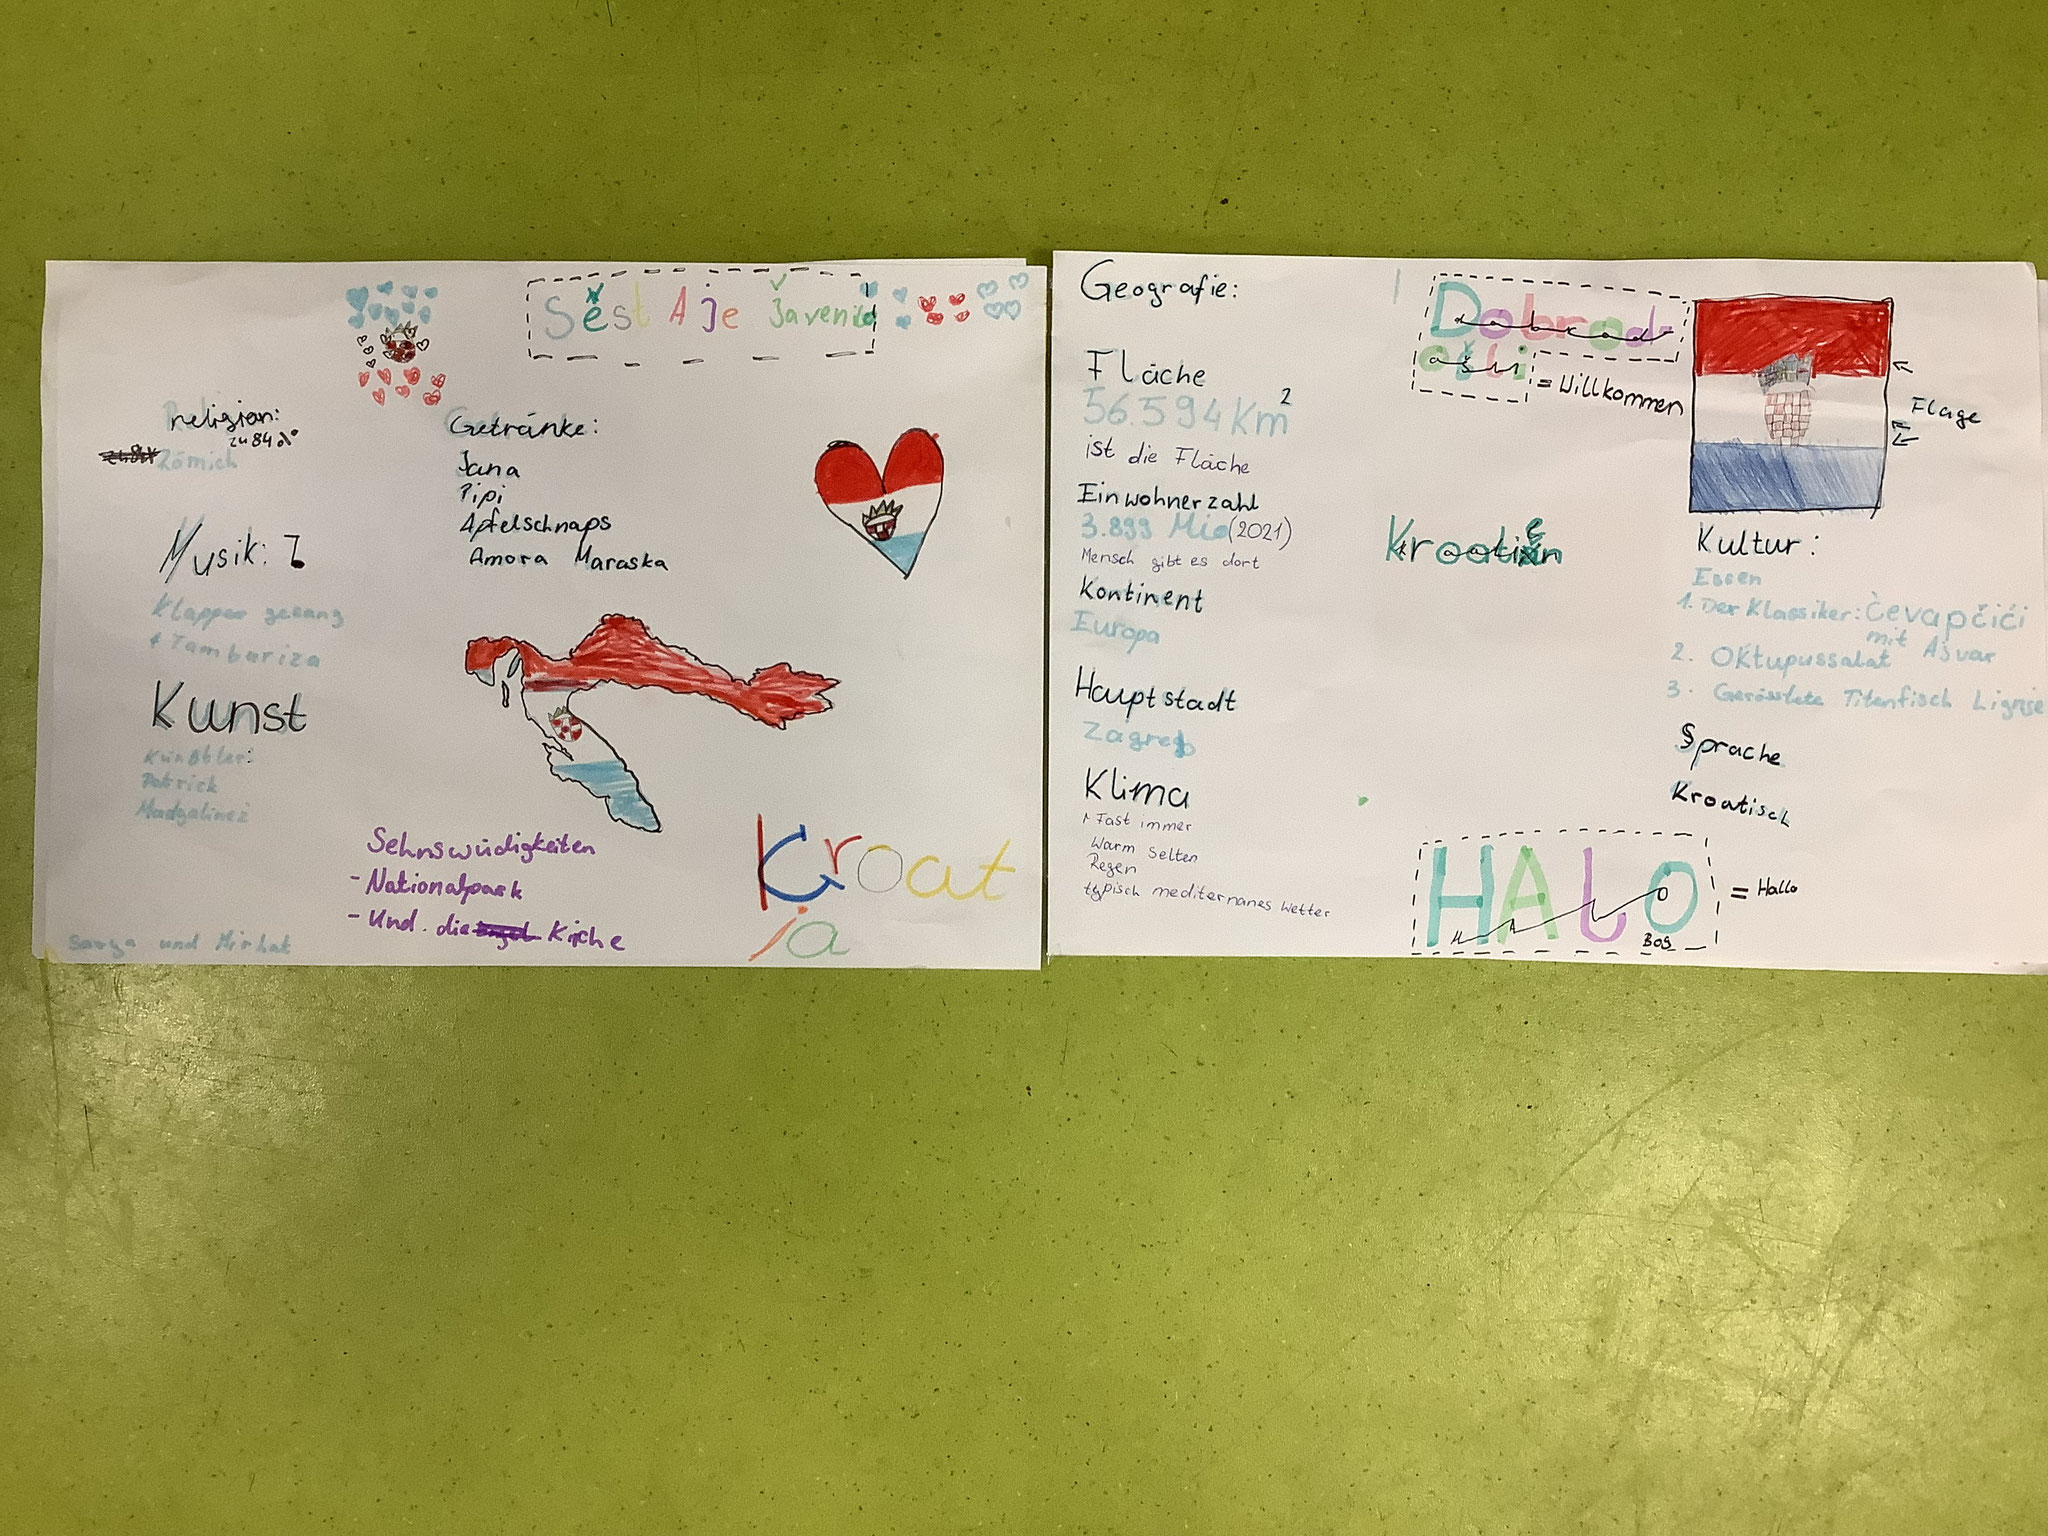 Sest Aje Javenila
religion:
zu 84%
Römich
Musik:
Klapper gesang
+ Tamburiza
Kunst
Künstler:
Patrick
Getränke:
Jana
Pipi
Apfelschnaps
Amora Maraska
Sehnswüdigkeiten
- Nationalpark
- Und. die Kirche
Kroat
ia
und Mirhat
Geografie:
Fläche
56.594 Km²
ist die Fläche
Einwohnerzahl
3.899 Mio (2021)
Mensch gibt es dort
Kontinent
Europa
Hauptstadt
Zagreb
Klima
Fast immer
Warm Selten
Regen
typisch mediternanes Wetter
Dobrod
ošli = Willkommen
Kroatien
Flage
Kultur:
Essen
1. Der Klassiker: Čevapčići
mit Ajvar
2. Oktupussalat
3. Gerösstete Titenfisch Lignje
Sprache
Kroatisch
HALO = Hallo
BOG